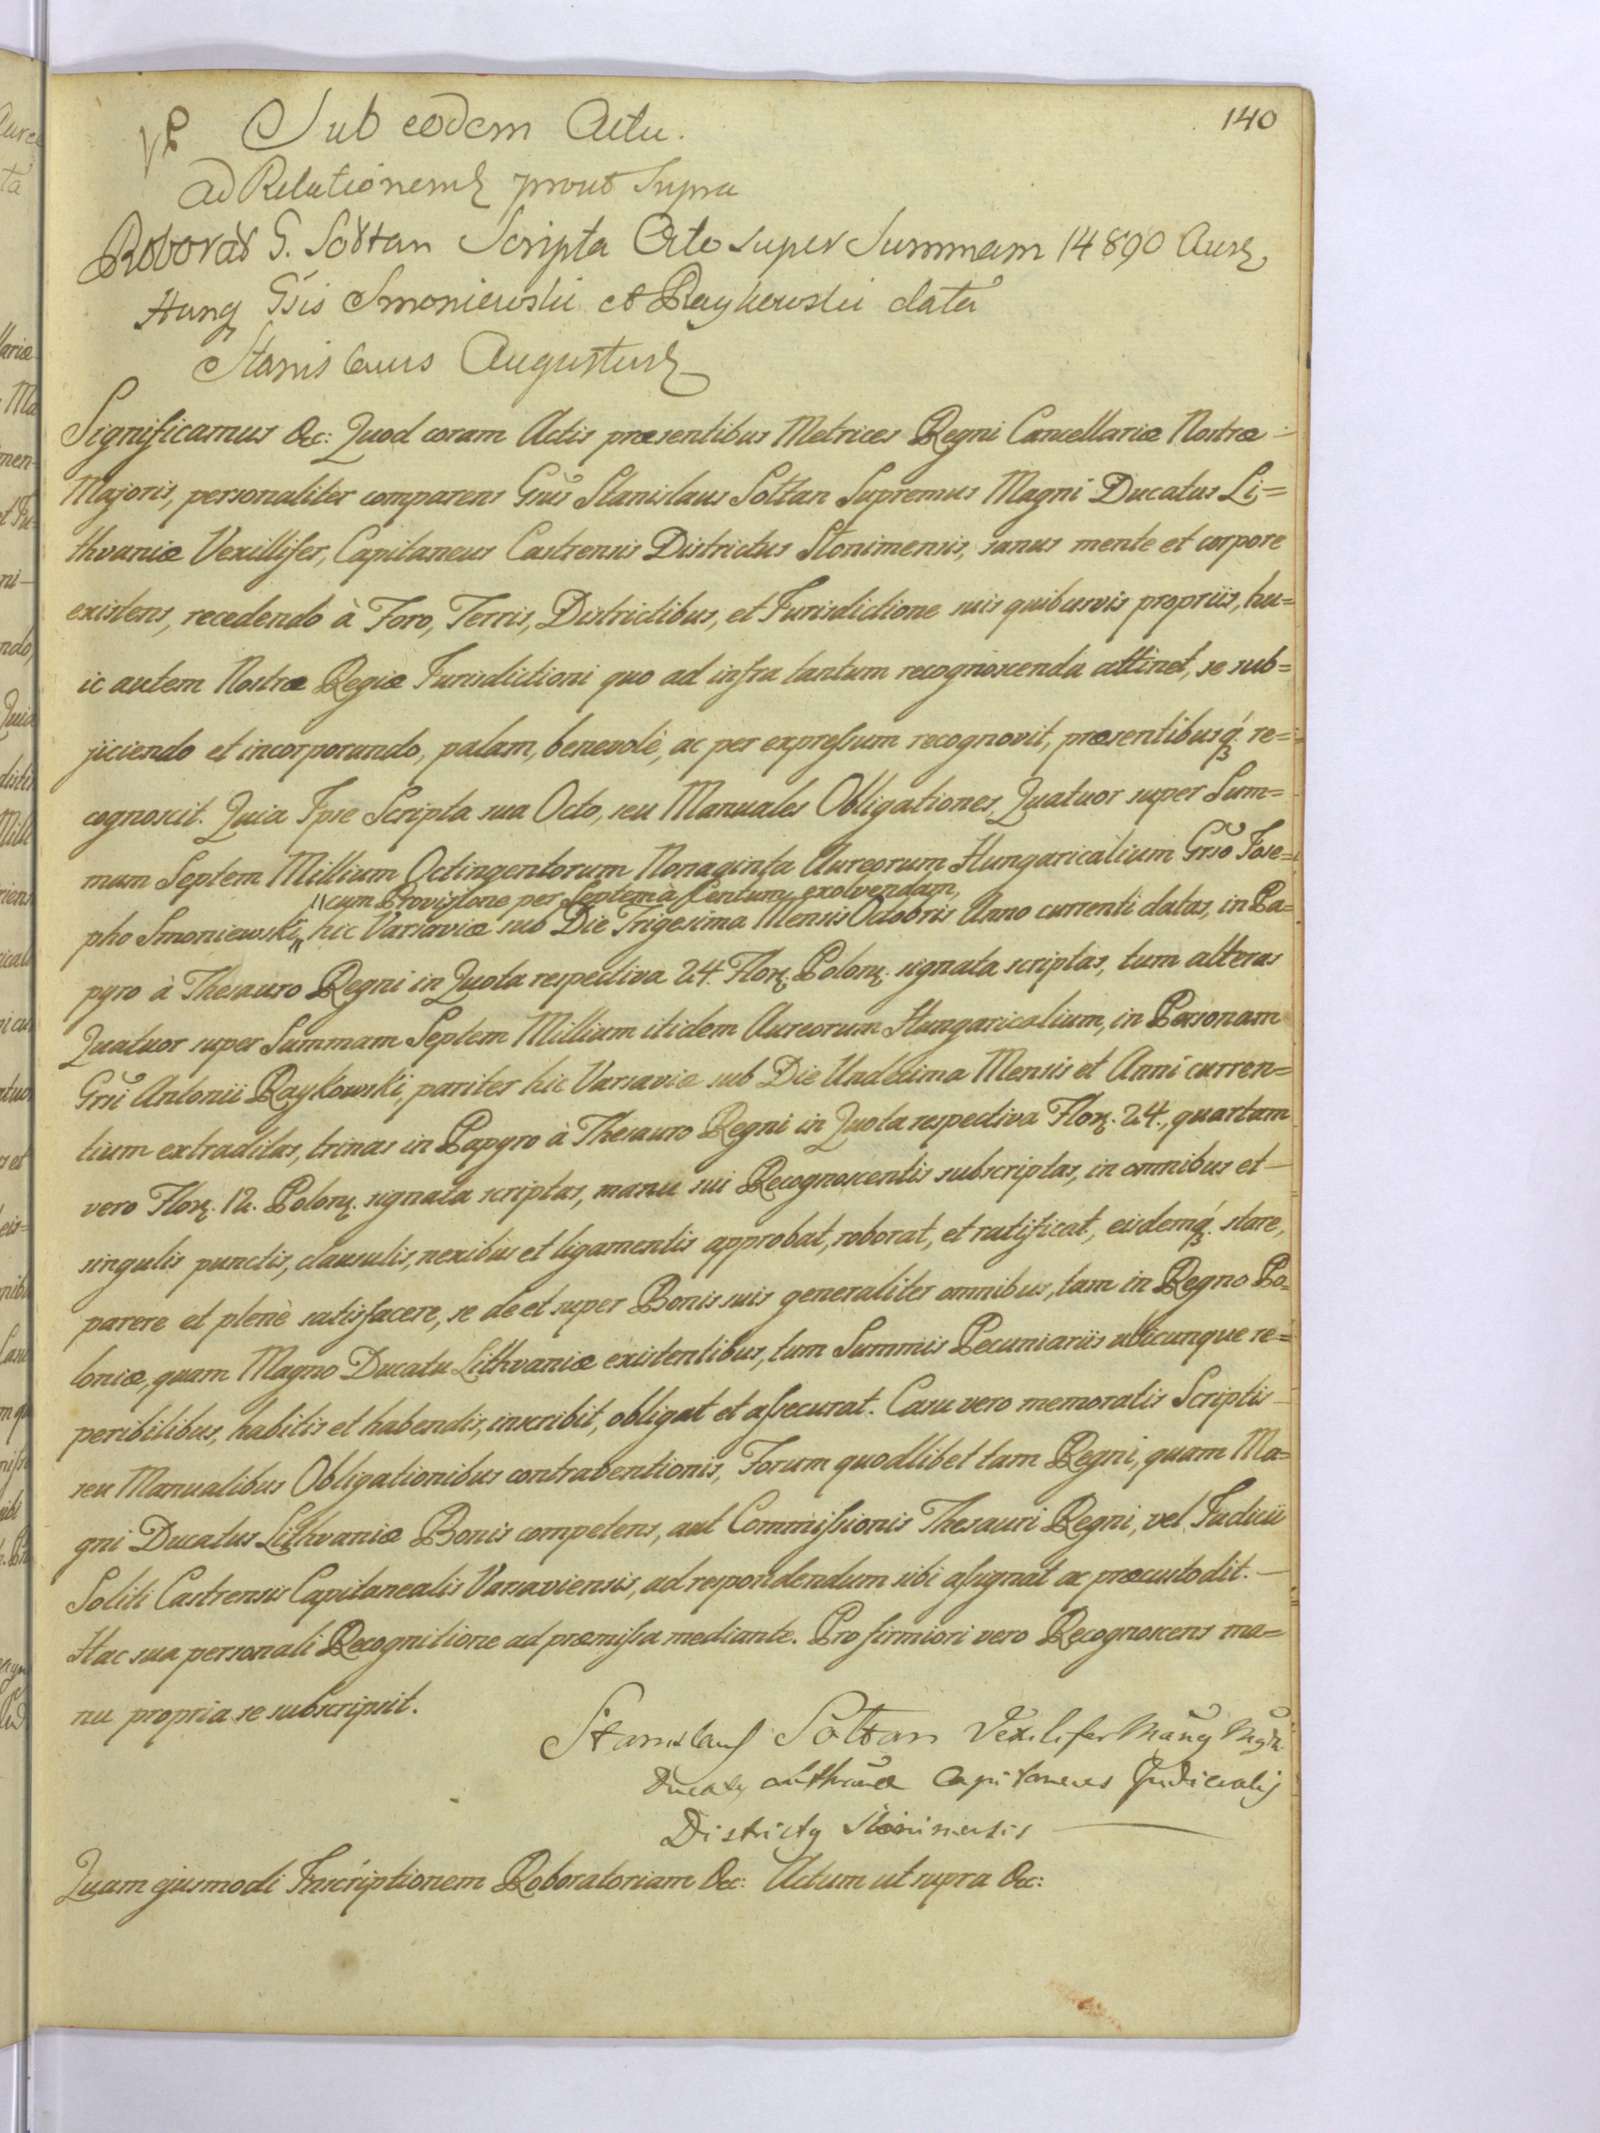 140
Sub eodem Actu.
Ad Relationem prout Supra
Roborat G. Sołtan Scripta Octo super Summam 14890 Aur.
Hung Gsis Smoniewski et Raykowski data
Stanislaus Augustus
Significamus &c: Quod coram Actis præsentibus Metrices Regni Cancellariæ Nostræ
Majoris, personaliter comparens Gnus Stanislaus Sołtan Supremus Magni Ducatus Li=
thvaniæ Vexillifer, Capitaneus Castrensis Districtus Słonimensis, sanus mente et corpore
existens, recedendo à Foro, Terris, Districtibus, et Jurisdictione suis quibusvis propriis, hu=
ic autem Nostræ Regiæ Jurisdictioni quo ad infra tantum recognoscenda attinet, se sub=
jiciendo et incorporando, palam, benevolè, ac per expressum recognovit, præsentibusq́. re=
cognoscit. Quia Ipse Scripta sua Octo, seu Manuales Obligationes Quatuor super Sum=
mam Septem Millium Octingentorum Nonaginta Aureorum Hungaricalium Grso Jose=
cum Provisione per Septem à Centum exolvendam,
pho Smoniewski hic Varsaviæ sub Die Trigesima Mensis Octobris Anno currenti datas, in Pa=
pyro à Thesauro Regni in Quota respectiva 24. Flor. Polon. signata scriptas, tum alteras
Quatuor super Summam Septem Millium itidem Aureorum Hungaricalium, in Personam
Grsi Antonii Raykowski, pariter hic Varsaviæ sub Die Undecima Mensis et Anni curren=
tium extraditas, trinas in Papyro à Thesauro Regni in Quota respectiva Flor. 24., quartam
vero Flor. 12. Polon. signata scriptas, manu sui Recognoscentis subscriptas, in omnibus et
singulis punctis, clausulis, nexibus et ligamentis approbat, roborat, et ratificat, eisdemq́. stare,
parere et plenè satisfacere, se de et super Bonis suis generaliter omnibus, tam in Regno Po=
loniæ, quam Magno Ducatu Lithvaniæ existentibus, tum Summis Pecuniariis ubicunque re=
peribilibus, habitis et habendis, inscribit, obligat et assecurat. Casu vero memoratis Scriptis
seu Manualibus Obligationibus contraventionis, Forum quodlibet tam Regni, quam Ma=
gni Ducatus Lithvaniæ Bonis competens, aut Commissionis Thesauri Regni, vel Judicii
Soliti Castrensis Capitanealis Varsaviensis, ad respondendum sibi assignat ac præcustodit.
Hac sua personali Recognitione ad præmissa mediante. Pro firmiori vero Recognoscens ma=
nu propria se subscripsit.
Stanislaus Sołtan Vexilifer
Capitaneus Judicialis
Districtus Słonimensis
Quam ejusmodi Inscriptionem Roboratoriam &c: Actum ut supra &c: